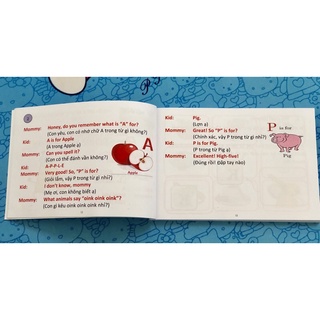 Mommy: Honey, do you remember what is "A" for?
(Con yêu, con có nhớ chữ A trong từ gì không?)
Kid: A is for Apple
(A trong Apple ạ)
Mommy: Can you spell it?
(Con có thể đánh vần không?)
Kid: A-P-P-L-E
Mommy: Very good! So, "P" is for?
(Giỏi lắm, vậy P trong từ gì nhỉ?)
Kid: I don't know, mommy
(Mẹ ơi, con không biết ạ)
Mommy: What animals say "oink oink oink"?
(Con gì kêu oink oink oink nhỉ?)
A
Apple
Kid: Pig.
(Lợn ạ)
Mommy: Great! So "P" is for?
(Chính xác, vậy P trong từ gì nhỉ?)
Kid: P is for Pig.
(P trong từ Pig ạ)
Mommy: Excellent! High-five!
(Đúng rồi! Đập tay nào)
P is for
Pig